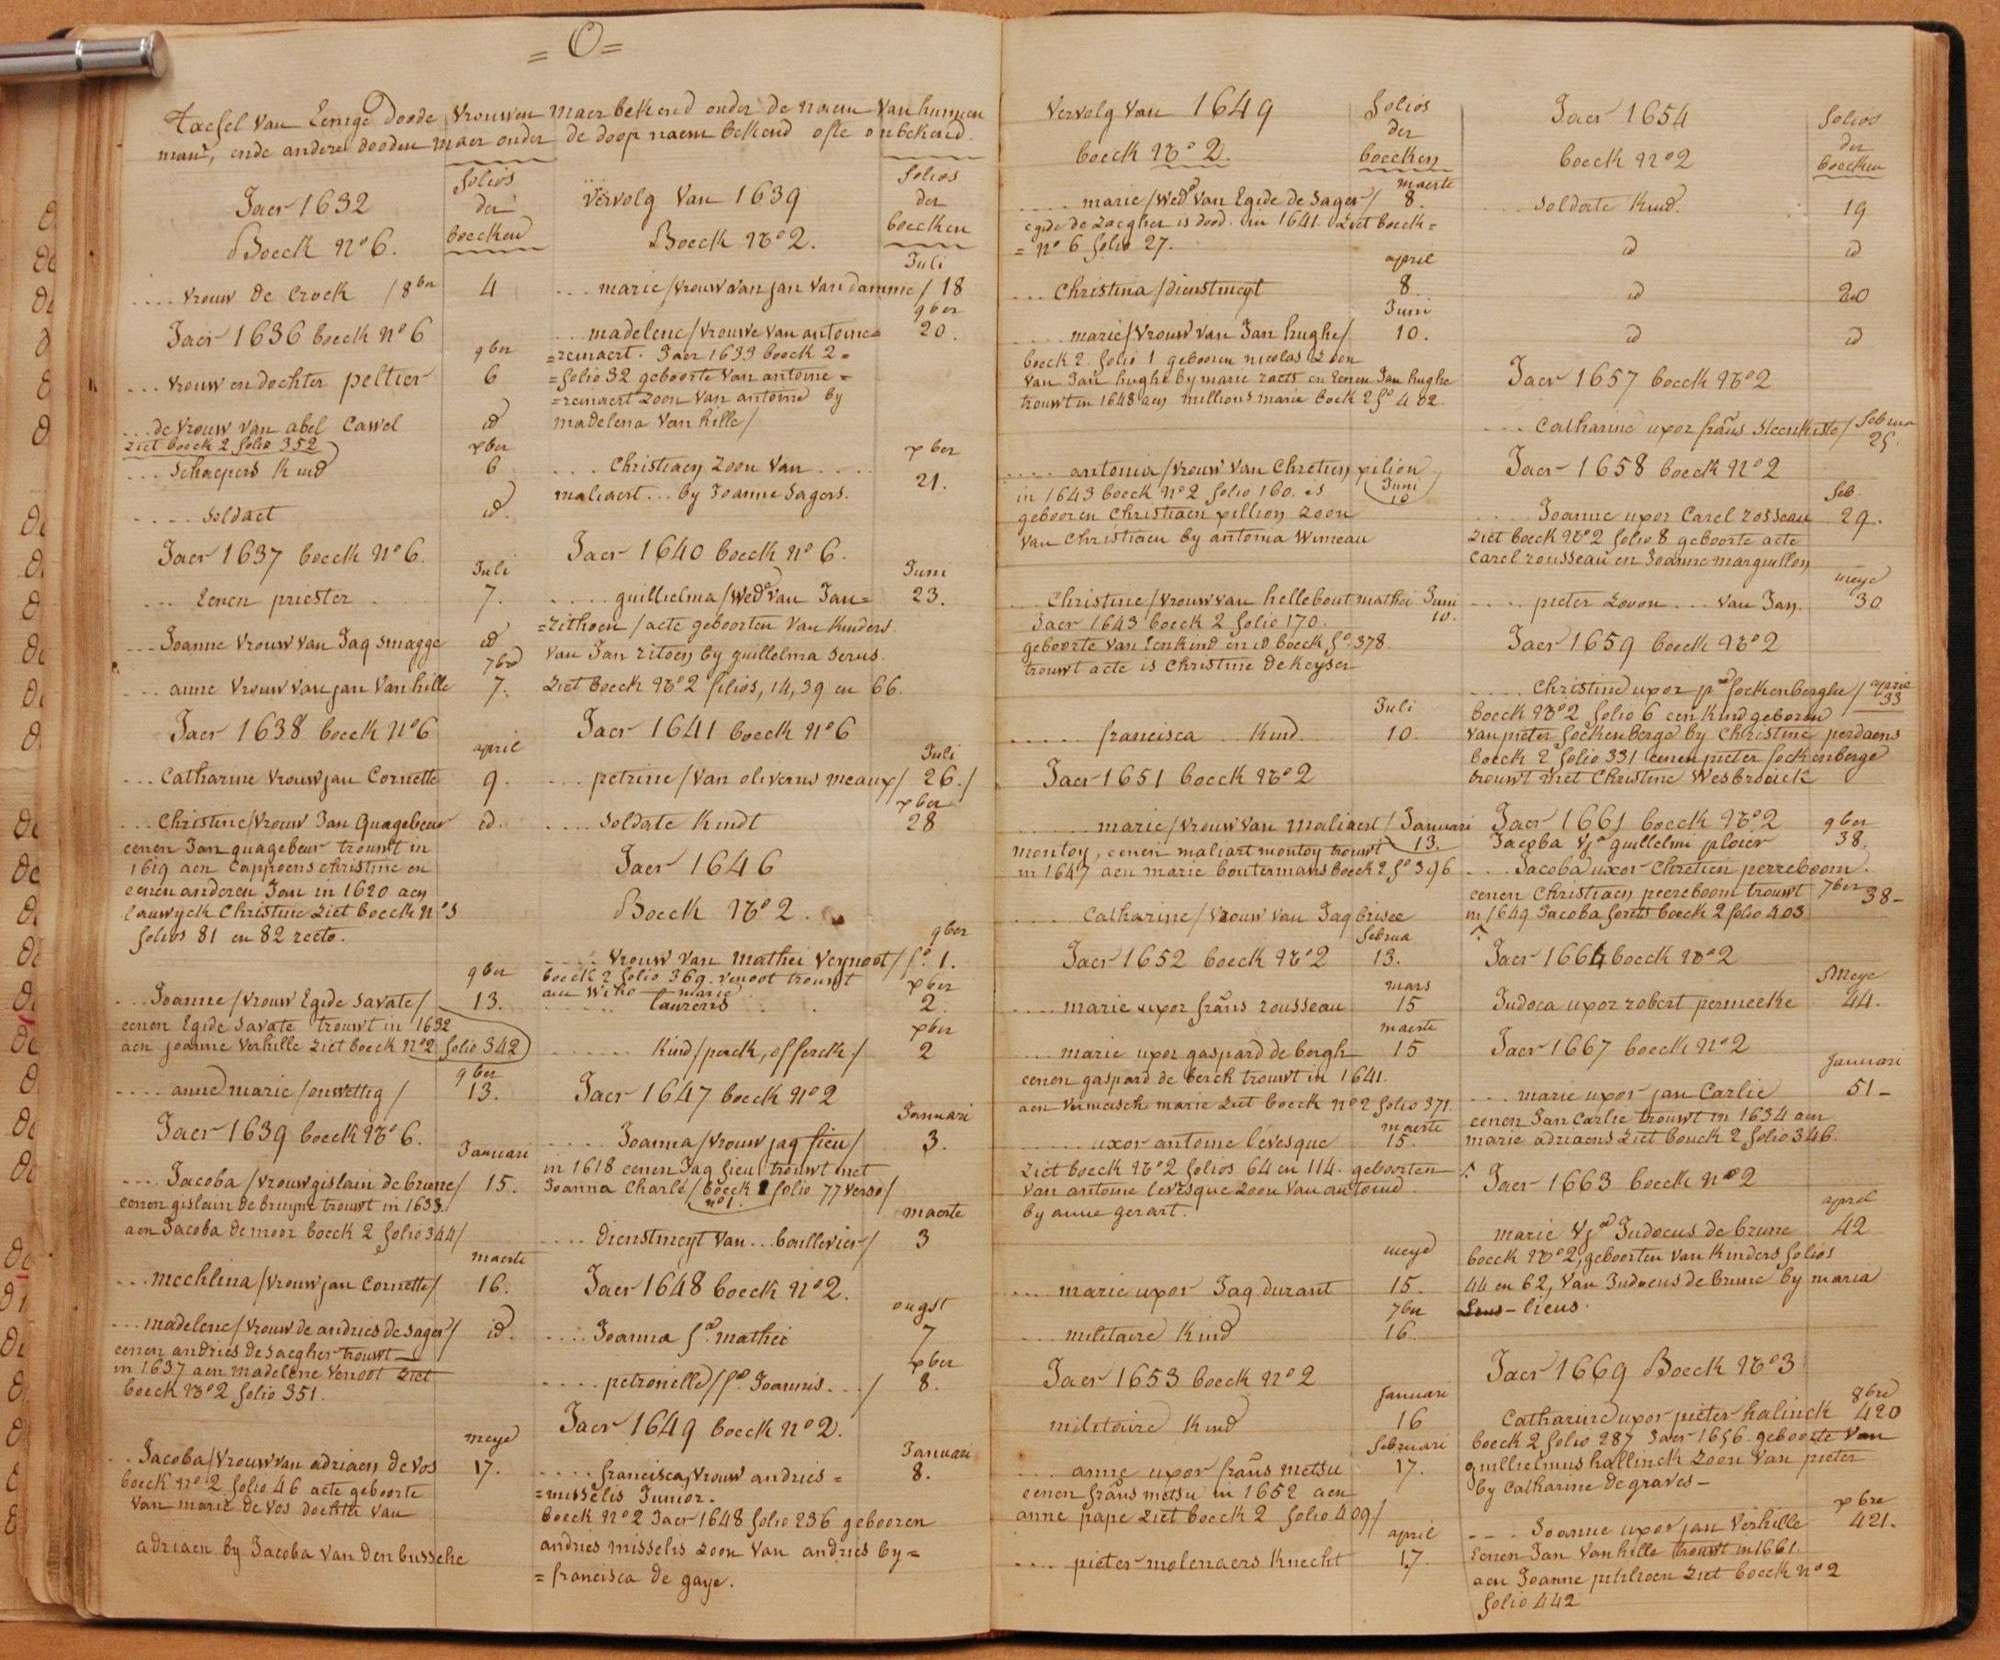 = O =
Taefel van Eenige doode vrouwen maer bekend onder de naem van hunnen
man, ende andere dooden maer onder de doop naem bekend ofte onbekend.
Jaer 1632
Boeck N° 6.
folios
der
boecken
.... vrouw de Crock / 8ber 4
Jaer 1636 boeck N° 6
9ber
... vrouw en dochter peltier 6
... de vrouw van abel Cawel id
ziet boeck 2 folio 352
xber
... Schaepers Kind 6
..... Soldaet id.
Jaer 1637 boeck N° 6.
Juli
... Eenen priester 7.
... Joanne vrouw van Jaq Smagge id
7bre
... anne vrouw van jan van hille 7.
Jaer 1638 boeck N° 6
april
... Catharine vrouw jan Cornette 9.
... Christine/vrouw Jan Quagebeur id.
eenen Jan quagebeur trouwt in
1619 aen Cappoens christine en
eenen anderen Jan in 1620 aen
Lauwyck Christine ziet boeck n° 3
folios 81 en 82 recto.
9ber
... Joanne/vrouw Egide Savate/ 13.
eenen Egide Savate trouwt in 1632
aen joanne Verhille ziet boeck N° 2 folio 342
9ber
.... anne marie /onwettig/ 13.
Jaer 1639 boeck N° 6.
Januari
.... Jacoba/vrouw gislain de brune/ 15.
eenen gislain de bruyne trouwt in 1633
aen Jacoba de moor boeck 2 folio 344/
maerte
... mechlina/vrouw jan Cornette/ 16.
... madelene/vrouw de andries de Sager/ id.
eenen andries de Saegher trouwt
in 1637 aen madelene Venoot ziet
boeck N° 2 folio 351.
meye
.. Jacoba/vrouw van adriaen de vos 17.
boeck n° 2 folio 46 acte geboorte
van marie de vos dochter van
adriaen by Jacoba van den bussche
Vervolg van 1639
Boeck N° 2.
folios
der
boecken
Juli
... marie/vrouw van jan van damme/ 18
9ber
... madelene/vrouwe van antoine= 20.
=reinaert. Jaer 1633 boeck 2=
=folio 32 geboorte van antoine=
=reinaert zoon van antoine by
madelena van hille/
xber
.... Christiaen zoon van .... 21.
maliaert... by Joanne Sagers.
Jaer 1640 boeck N° 6.
Juni
..... guillielma/Wed. van Jan= 23.
=Zithoen/acte geboorten van Kinders
van Jan Zitoen by guillelma Serus.
ziet boeck N° 2 folios, 14, 39 en 66.
Jaer 1641 boeck N° 6
Juli
... petrine/van oliverus meaux/ 26./
xber
.... Soldate Kindt 28
Jaer 1646
Boeck N° 2.
9ber
..... vrouw van mathei Veynoot/f°. 1.
boeck 2 folio 369. Venoot trouwt
aen marie
xber
...... laurens 2.
xber
...... Kind/perck, offerck/ 2
Jaer 1647 boeck N° 2
Januari
..... Joanna/vrouw jaq fieu/ 3.
in 1618 eenen Jaq fieu trouwt met
Joanna Charle/boeck 1 folio 77 verso/
n° 1.
maerte
.... dienstmeyt van... boullevier/ 3
Jaer 1648 boeck N° 2.
ougst
.... Joanna fa. mathei 7
xber
..... petronelle/fa. Joannis..../ 8.
Jaer 1649 boeck N° 2.
Januari
..... francisca, vrouw andries= 8.
=misselis Junior.
boeck N° 2 Jaer 1648 folio 236 gebooren
andries misselis zoon van andries by=
=francisca de gaye.
Vervolg van 1649
boeck N° 2.
folios
der
boecken
maerte
..... marie/Wed. van Egide de Sager/ 8.
egide de Zaegher is dood in 1641. Ziet boeck=
=N° 6 folio 27.
april
... Christina/dienstmeyt 8
Juni
..... marie/vrouw van Jan hughe/ 10.
boeck 2. folio 1 gebooren nicolas zoon
van Jan hughe by marie raets en eenen Jan hughe
trouwt in 1648 aen millions marie boek 2 f° 402.
..... antonia/vrouw van Chretien pilion Juni 10
in 1643 boeck N° 2 folio 160. is
gebooren Christiaen pillion zoon
van Christiaen by antonia Wimeau
... Christine/vrouw van hellebout mathei Juni 10.
Jaer 1643 boeck 2 folio 170.
geboorte van Een kind en id boeck f° 378.
trouwt acte is Christine de Keyser
Juli
..... francisca .. Kind. 10.
Jaer 1651 boeck N° 2
...... marie/vrouw van maliaert/ Januari 13.
montoy, eenen maliart montoy trouwt
in 1647 aen marie boutermans boeck 2 f° 396
..... Catharine/vrouw van Jaq brisee
februa
Jaer 1652 boeck N° 2 13.
mars
.... marie uxor frans rousseau 15
maerte
.... marie uxor gaspard de bergh 15
eenen gaspard de berck trouwt in 1641.
aen Vermeisch marie ziet boeck N° 2 folio 371.
maerte
..... uxor antoine lévesque 15.
ziet boeck N° 2 folios 64 en 114. geboorten
van antoine levesque zoon van antoine
by anne gerart.
meye
... marie uxor Jaq durant 15.
7ber
.... militaire Kind 16.
Jaer 1653 boeck N° 2
Januari
militaire Kind 16
februari
... anne uxor frans metsu 17.
eenen frans metsu in 1652 aen
anne pape ziet boeck 2 folio 409/
april
.... pieter molenaers Knecht 17.
Jaer 1654
boeck N° 2
folios
der
boecken
... Soldate Kind. 19
id id
id 20
id id
Jaer 1657 boeck N° 2
... Catharine uxor frans Sleenkiste/ februa 25.
Jaer 1658 boeck N° 2
feb.
..... Joanne uxor Carel rosseau 29.
ziet boeck N° 2 folio 8 geboorte acte
Carel rousseau en Joanne marguillon
meye
.... pieter zoon.... van Jan. 30
Jaer 1659 boeck N° 2
.... Christine uxor p. fockenberghe/ april 33
boeck N° 2 folio 6 een Kind geboren
van pieter fockenberge by Christine perdaens
boeck 2 folio 331 eenen pieter fockenberge
trouwt met Christine Wesbrouick
Jaer 1661 boeck N° 2 9ber
Jacoba Va guillelm ploier 38.
... Jacoba uxor Chretien perreboom.
eenen Christiaen peereboom trouwt 7ber 38-
in 1649 Jacoba forits boeck 2 folio 403
Jaer 1664 boeck N° 2
Meye
Judoca uxor robert permeeke 44.
Jaer 1667 boeck N° 2
Januari
... marie uxor jan Carlie 51-
eenen Jan Carlie trouwt in 1634 aen
marie adriaens ziet bouck 2 folio 346.
Jaer 1663 boeck N° 2
april
marie Va Judocus de brune 42
boeck N° 2, geboorten van Kinders folios
44 en 62, van Judocus de brune by maria
lieus.
Jaer 1669 Boeck N° 3
8bre
Catharine uxor pieter halinck 420
boeck 2 folio 287 Jaer 1656. geboorte van
guillielmus hallinck zoon van pieter
by Catharine de graves-
xbre
.... Joanne uxor jan Verhille 421.
Eenen Jan Vanhille trouwt in 1661.
aen Joanne pitilioen ziet boeck N° 2
folio 442